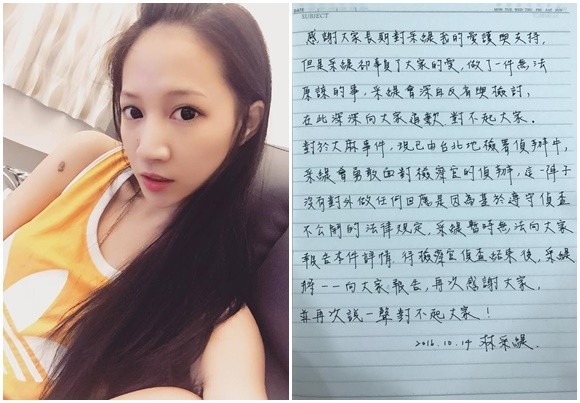 SUBJECT
感謝大家長期對采緹我的愛護與支持，
但是采緹卻辜負了大家的愛，做了一件無法
原諒的事，采緹會深自反省與檢討，
在此深深向大家道歉 對不起大家．
對於大麻事件，現已由台北地檢署偵辦中，
采緹會勇敢面對檢察官的偵辦，這一陣子
沒有對外做任何回應是因為基於遵守偵查
不公開的法律規定，采緹暫時無法向大家
報告本件詳情，待檢察官偵查結束後，采緹
將一一向大家報告，再次感謝大家，
並再次說一聲對不起大家！
2016.10.14 林采緹.